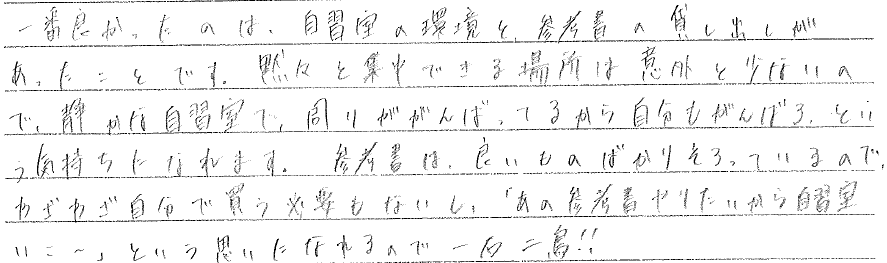 一番良かったのは、自習室の環境と、参考書の貸し出しが
あったことです。黙々と集中できる場所は意外と少ないの
で、静かな自習室で、周りががんばってるから自分もがんばろ、とい
う気持ちになれます。 参考書は、良いものばかりそろっているので、
わざわざ自分で買う必要もないし、「あの参考書やりたいから自習室
いこ～」という思いになれるので一石二鳥!!